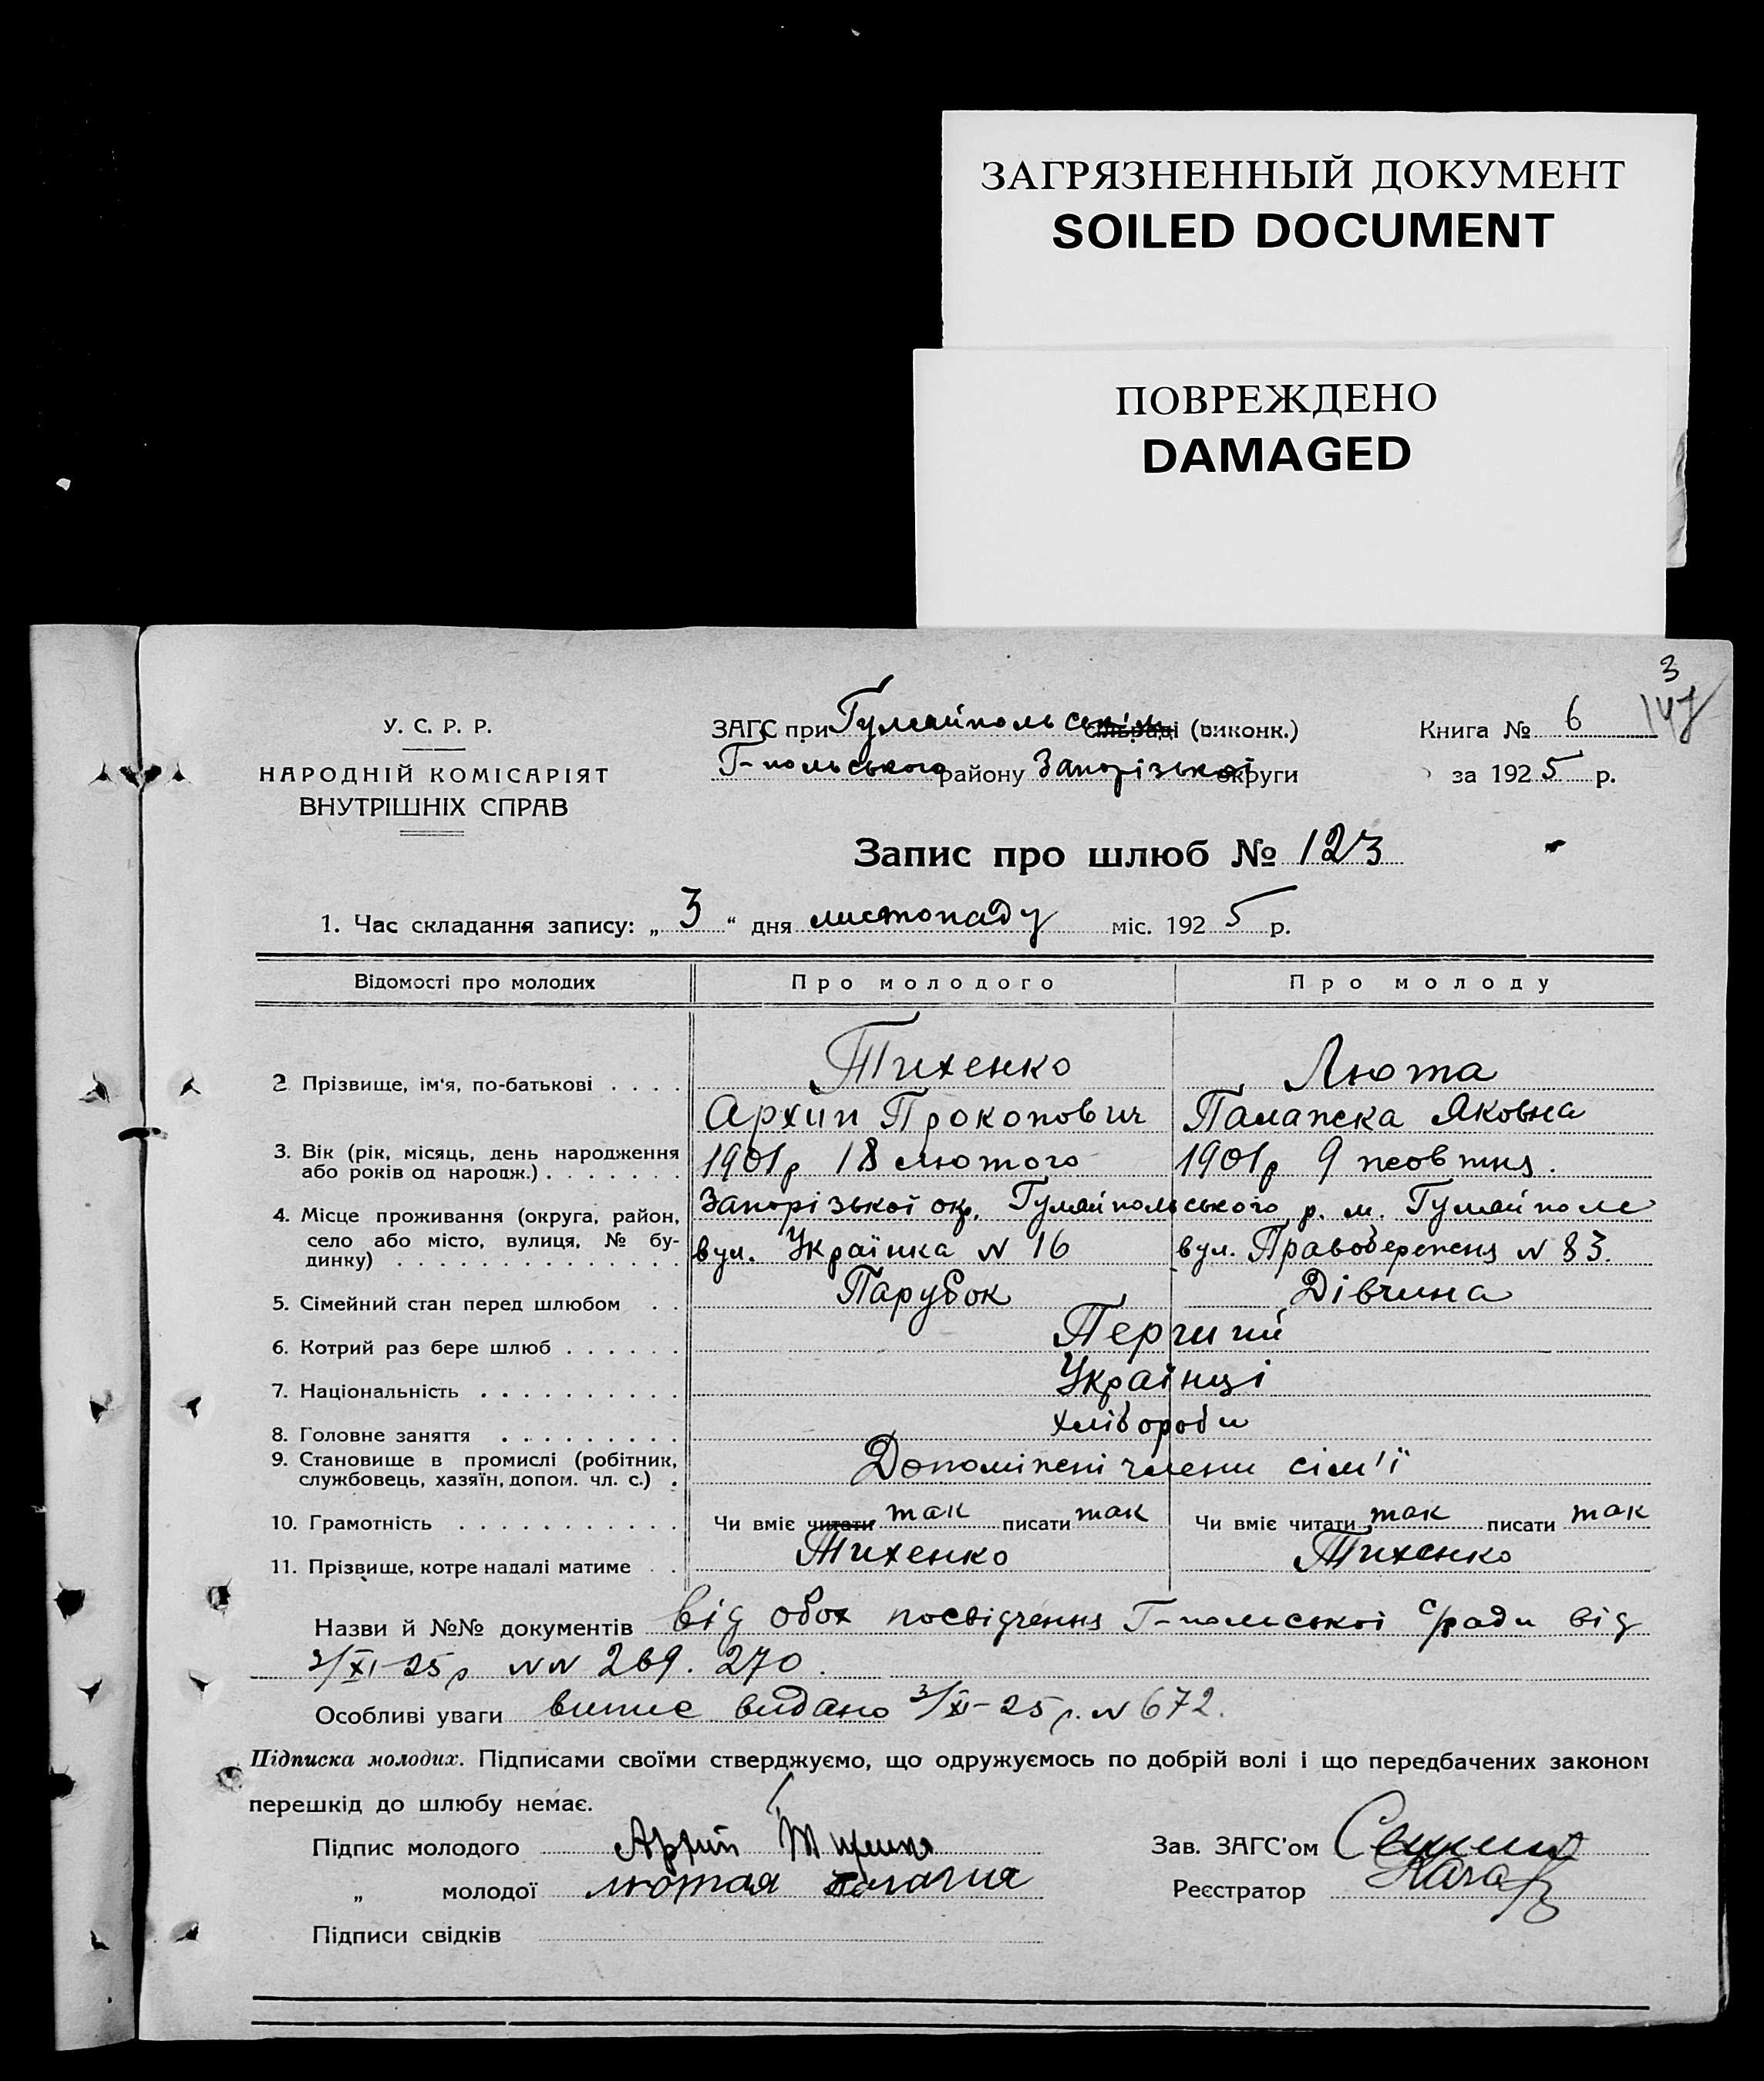 ЗАГРЯЗНЕННЫЙ ДОКУМЕНТ
SOILED DOCUMENT
ПОВРЕЖДЕНО
DAMAGED
3
147
У. С. Р. Р.
НАРОДНІЙ КОМІСАРІЯТ
ВНУТРІШНІХ СПРАВ
ЗАГС при Гуляйпольськім сільраді (виконк.)
Г-польського району Запорізької округи
Книга № 6
за 1925 р.
Запис про шлюб № 123
1. Час складання запису: „ 3 “ дня листопаду міс. 1925 р.
Відомості про молодих Про молодого Про молоду
2 Прізвище, ім'я, по-батькові . . . . Тихенко Люта
Архип Прокопович Палажка Яковна
3. Вік (рік, місяць, день народження або років од народж.) . . . . . . . 1901р 18 лютого 1901р 9 жовтня.
4. Місце проживання (округа, район, село або місто, вулиця, № будинку) . . . . . . . . . . . . . . Запорізької окр. Гуляйпольського р. м. Гуляйполе
вул. Українка N 16 вул. Правобережня N 83.
5. Сімейний стан перед шлюбом . . Парубок Дівчина
6. Котрий раз бере шлюб . . . . . . Перший
7. Національність . . . . . . . . . . Українці
8. Головне заняття . . . . . . . . . хлібороби
9. Становище в промислі (робітник, службовець, хазяїн, допом. чл. с.) . Допоміжні члени сім'ї
10. Грамотність . . . . . . . . . . . Чи вміє читати так писати так Чи вміє читати так писати так
11. Прізвище, котре надалі матиме . . Тихенко Тихенко
Назви й №№ документів від обох посвідчення Г-польської с/ради від
3/XI-25р NN 269. 270.
Особливі уваги випис видано 3/XI-25 р. N 672.
Підписка молодих. Підписами своїми стверджуємо, що одружуємось по добрій волі і що передбачених законом
перешкід до шлюбу немає.
Підпис молодого Архип Зав. ЗАГС'ом
„ молодої лютая Палагия Реєстратор
Підписи свідків